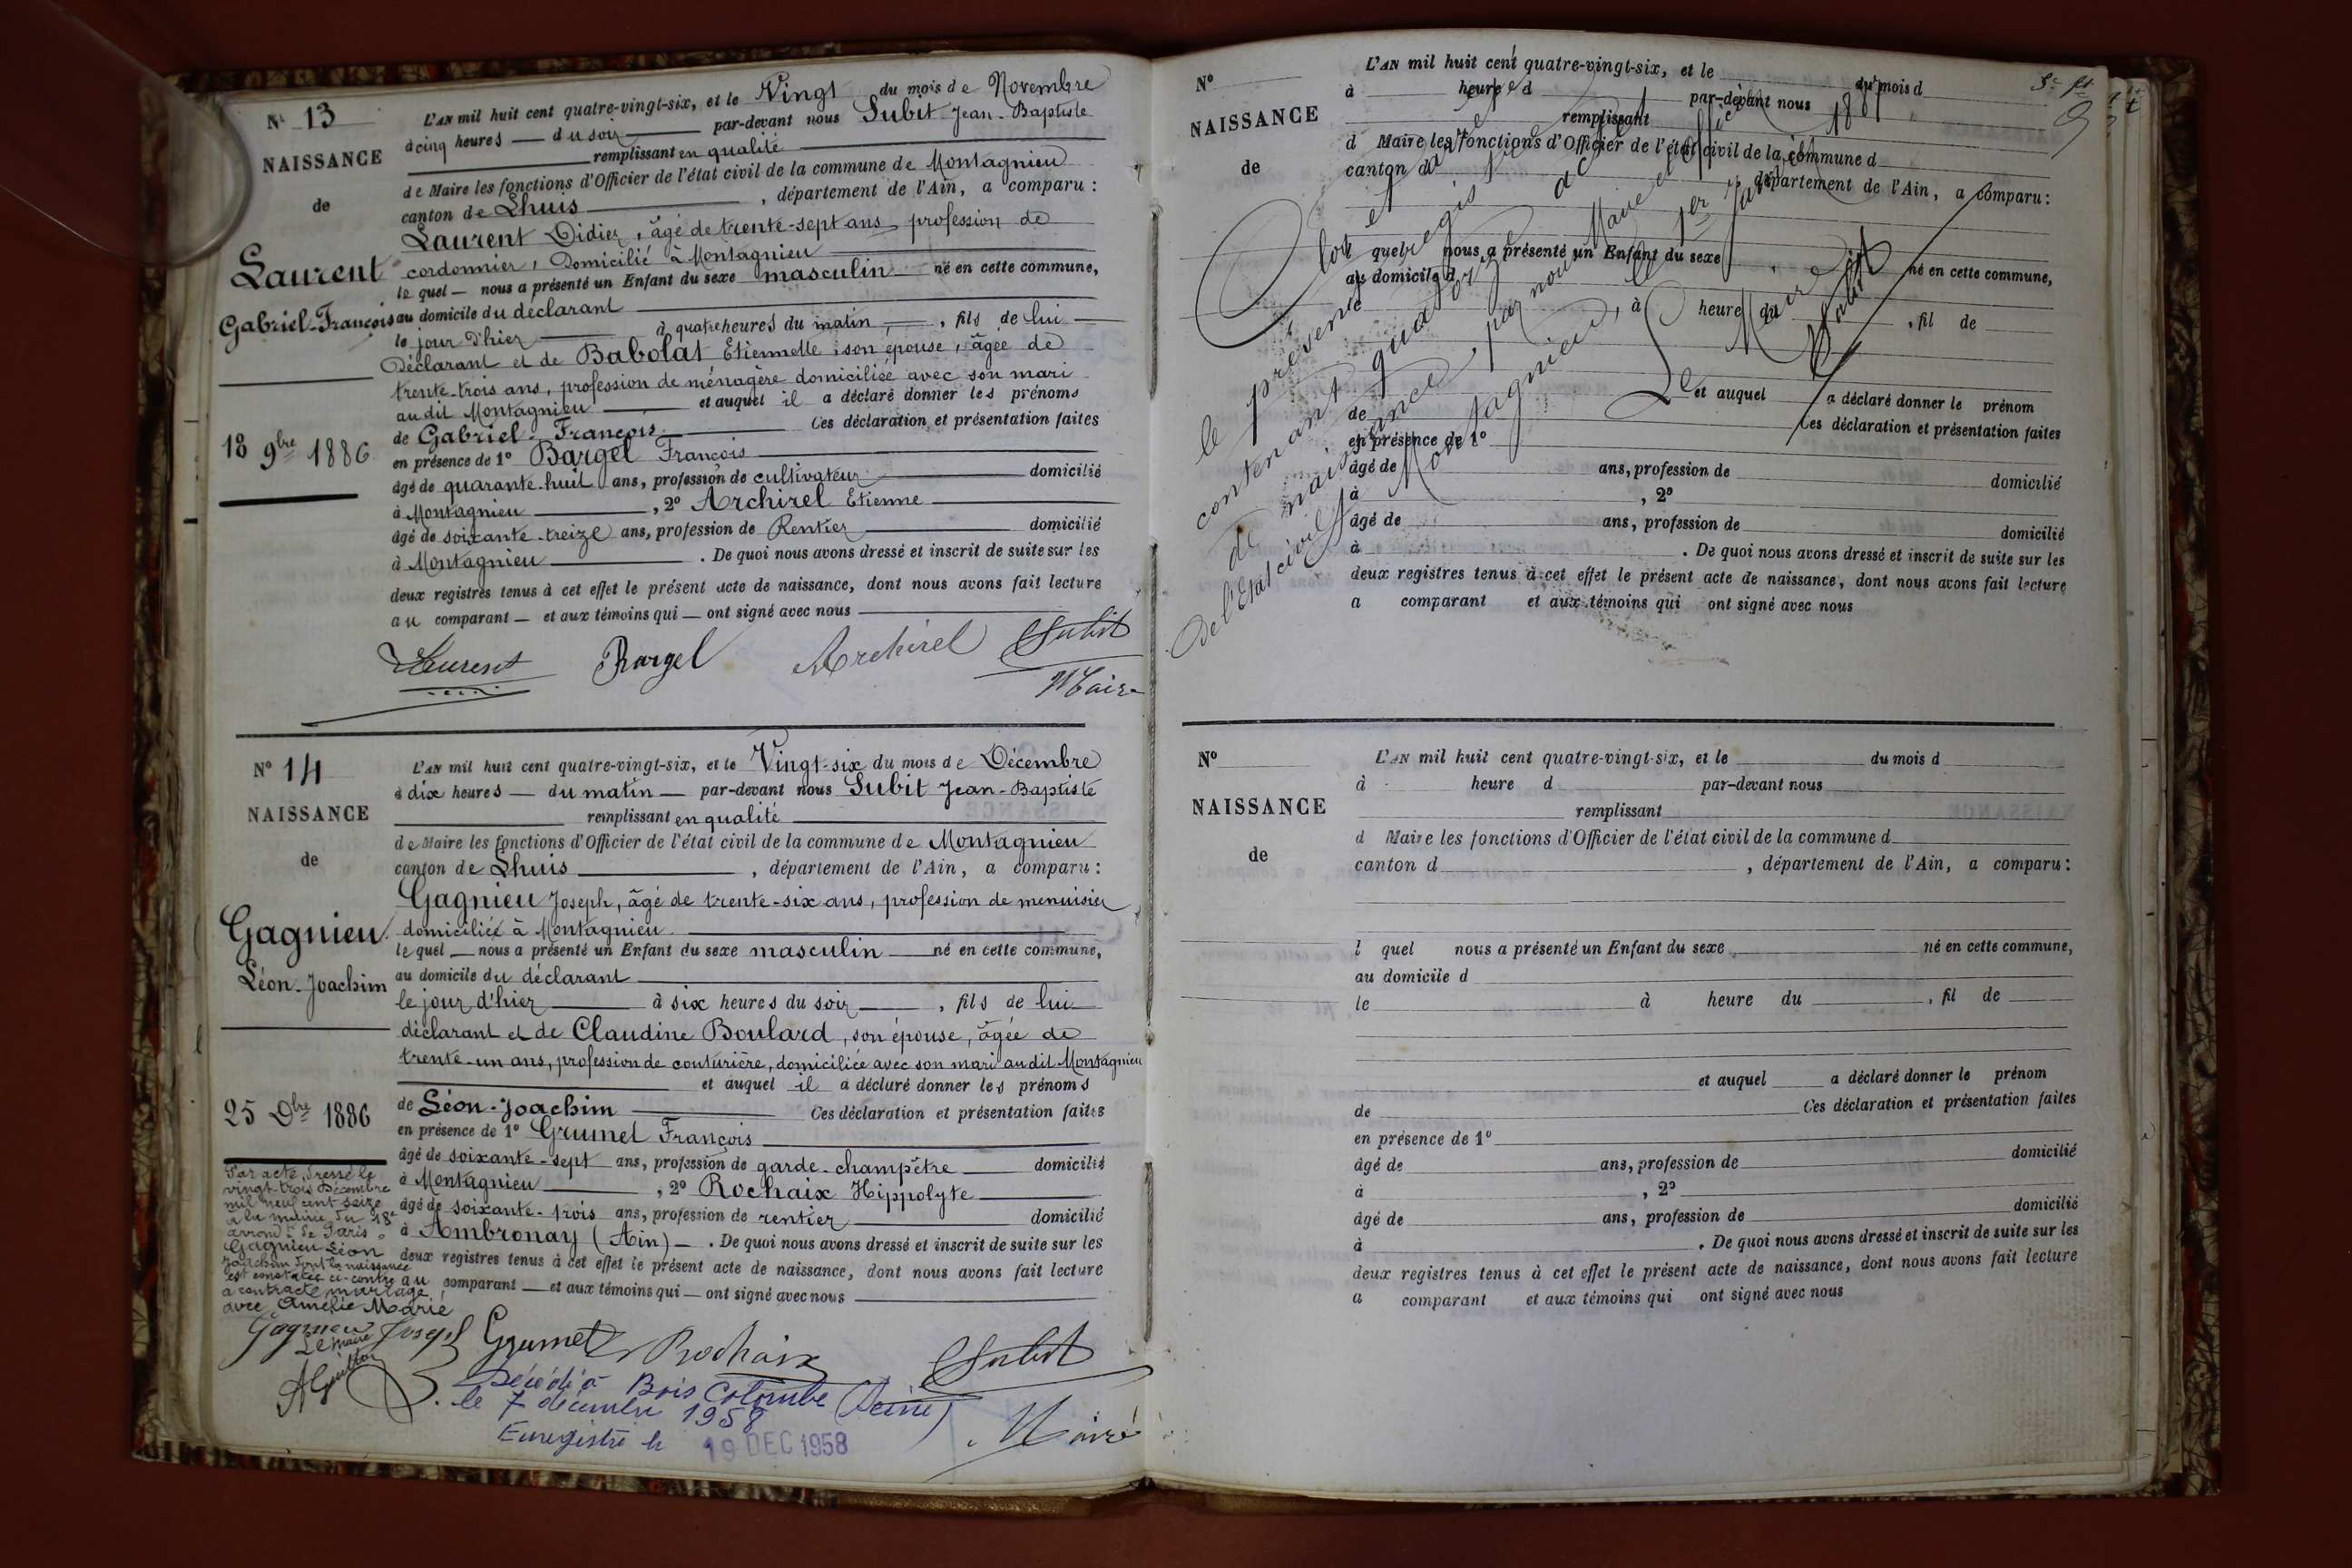 N° 13
NAISSANCE
de
Laurent
Gabriel-François
18 9bre 1886
L'AN mil huit cent quatre-vingt-six, et le Vingt du mois de Novembre
à cinq heures du soir par-devant nous Subit Jean-Baptiste
remplissant en qualité
de Maire les fonctions d'Officier de l'état civil de la commune de Montagnieu
canton de Lhuis, département de l'Ain, a comparu:
Laurent Didier, âgé de trente-sept ans, profession de
cordonnier, Domicilié à Montagnieu
le quel — nous a présenté un Enfant du sexe masculin né en cette commune,
au domicile du déclarant
le jour d'hier à quatre heures du matin, fils de lui
Déclarant et de Babolat Etiennette, son épouse, âgée de
trente-trois ans, profession de ménagère domiciliée avec son mari
au dit Montagnieu et auquel il a déclaré donner les prénoms
de Gabriel-François Ces déclaration et présentation faites
en présence de 1° Bargel François
âgé de quarante-huit ans, profession de cultivateur domicilié
à Montagnieu, 2° Archirel Etienne
âgé de soixante-treize ans, profession de Rentier domicilié
à Montagnieu. De quoi nous avons dressé et inscrit de suite sur les
deux registres tenus à cet effet le présent acte de naissance, dont nous avons fait lecture
au comparant — et aux témoins qui — ont signé avec nous
Laurent Bargel Archirel Subit
Maire
N° 14
NAISSANCE
de
Gagnieu
Léon-Joachim
25 Dbre 1886
L'AN mil huit cent quatre-vingt-six, et le Vingt-six du mois de Décembre
à dix heures — du matin — par-devant nous Subit Jean-Baptiste
remplissant en qualité
de Maire les fonctions d'Officier de l'état civil de la commune de Montagnieu
canton de Lhuis, département de l'Ain, a comparu:
Gagnieu Joseph, âgé de trente-six ans, profession de menuisier
domicilié à Montagnieu
le quel — nous a présenté un Enfant du sexe masculin né en cette commune,
au domicile du déclarant
le jour d'hier à six heures du soir, fils de lui
déclarant et de Claudine Boulard, son épouse, âgée de
trente-un ans, profession de couturière, domiciliée avec son mari au dit Montagnieu
et auquel il a déclaré donner les prénoms
de Léon-Joachim Ces déclaration et présentation faites
en présence de 1° Grumet François
âgé de soixante-sept ans, profession de garde-champêtre domicilié
à Montagnieu, 2° Rochaix Hippolyte
âgé de soixante-trois ans, profession de rentier domicilié
à Ambronay (Ain) — . De quoi nous avons dressé et inscrit de suite sur les
deux registres tenus à cet effet le présent acte de naissance, dont nous avons fait lecture
au comparant — et aux témoins qui — ont signé avec nous
Par acte, dressé le
vingt-trois Décembre
mil neuf cent seize
à la mairie du 18e
arrond. de Paris
Gagnieu Léon
Joachim dont la naissance
est constatée ci-contre
a contracté mariage
avec Amélie Marie
Le Maire
Gagnieu Joseph Grumet Rochaix Subit
Maire
Décédé à Bois Colombe (Seine)
le 7 décembre 1958
Enregistré le 19 DEC 1958
N°
NAISSANCE
de
L'AN mil huit cent quatre-vingt-six, et le du mois d
à heure d par-devant nous
remplissant
d Maire les fonctions d'Officier de l'état civil de la commune d
canton d département de l'Ain, a comparu:
quel nous a présenté un Enfant du sexe né en cette commune,
au domicile d
à heure du , fil de
et auquel a déclaré donner le prénom
de Ces déclaration et présentation faites
en présence de 1°
âgé de ans, profession de domicilié
à , 2°
âgé de ans, profession de domicilié
à . De quoi nous avons dressé et inscrit de suite sur les
deux registres tenus à cet effet le présent acte de naissance, dont nous avons fait lecture
a comparant et aux témoins qui ont signé avec nous
Clos et
le présent registre
contenant quatorze actes
de naissance, par nous Maire et officier
De l'Etat civil à Montagnieu, le 1er Janvier 1887
Le Maire
Subit
N°
NAISSANCE
de
L'AN mil huit cent quatre-vingt-six, et le du mois d
à heure d par-devant nous
remplissant
d Maire les fonctions d'Officier de l'état civil de la commune d
canton d , département de l'Ain, a comparu:
l quel nous a présenté un Enfant du sexe né en cette commune,
au domicile d
le à heure du , fil de
et auquel a déclaré donner le prénom
de Ces déclaration et présentation faites
en présence de 1°
âgé de ans, profession de domicilié
à , 2°
âgé de ans, profession de domicilié
à . De quoi nous avons dressé et inscrit de suite sur les
deux registres tenus à cet effet le présent acte de naissance, dont nous avons fait lecture
a comparant et aux témoins qui ont signé avec nous